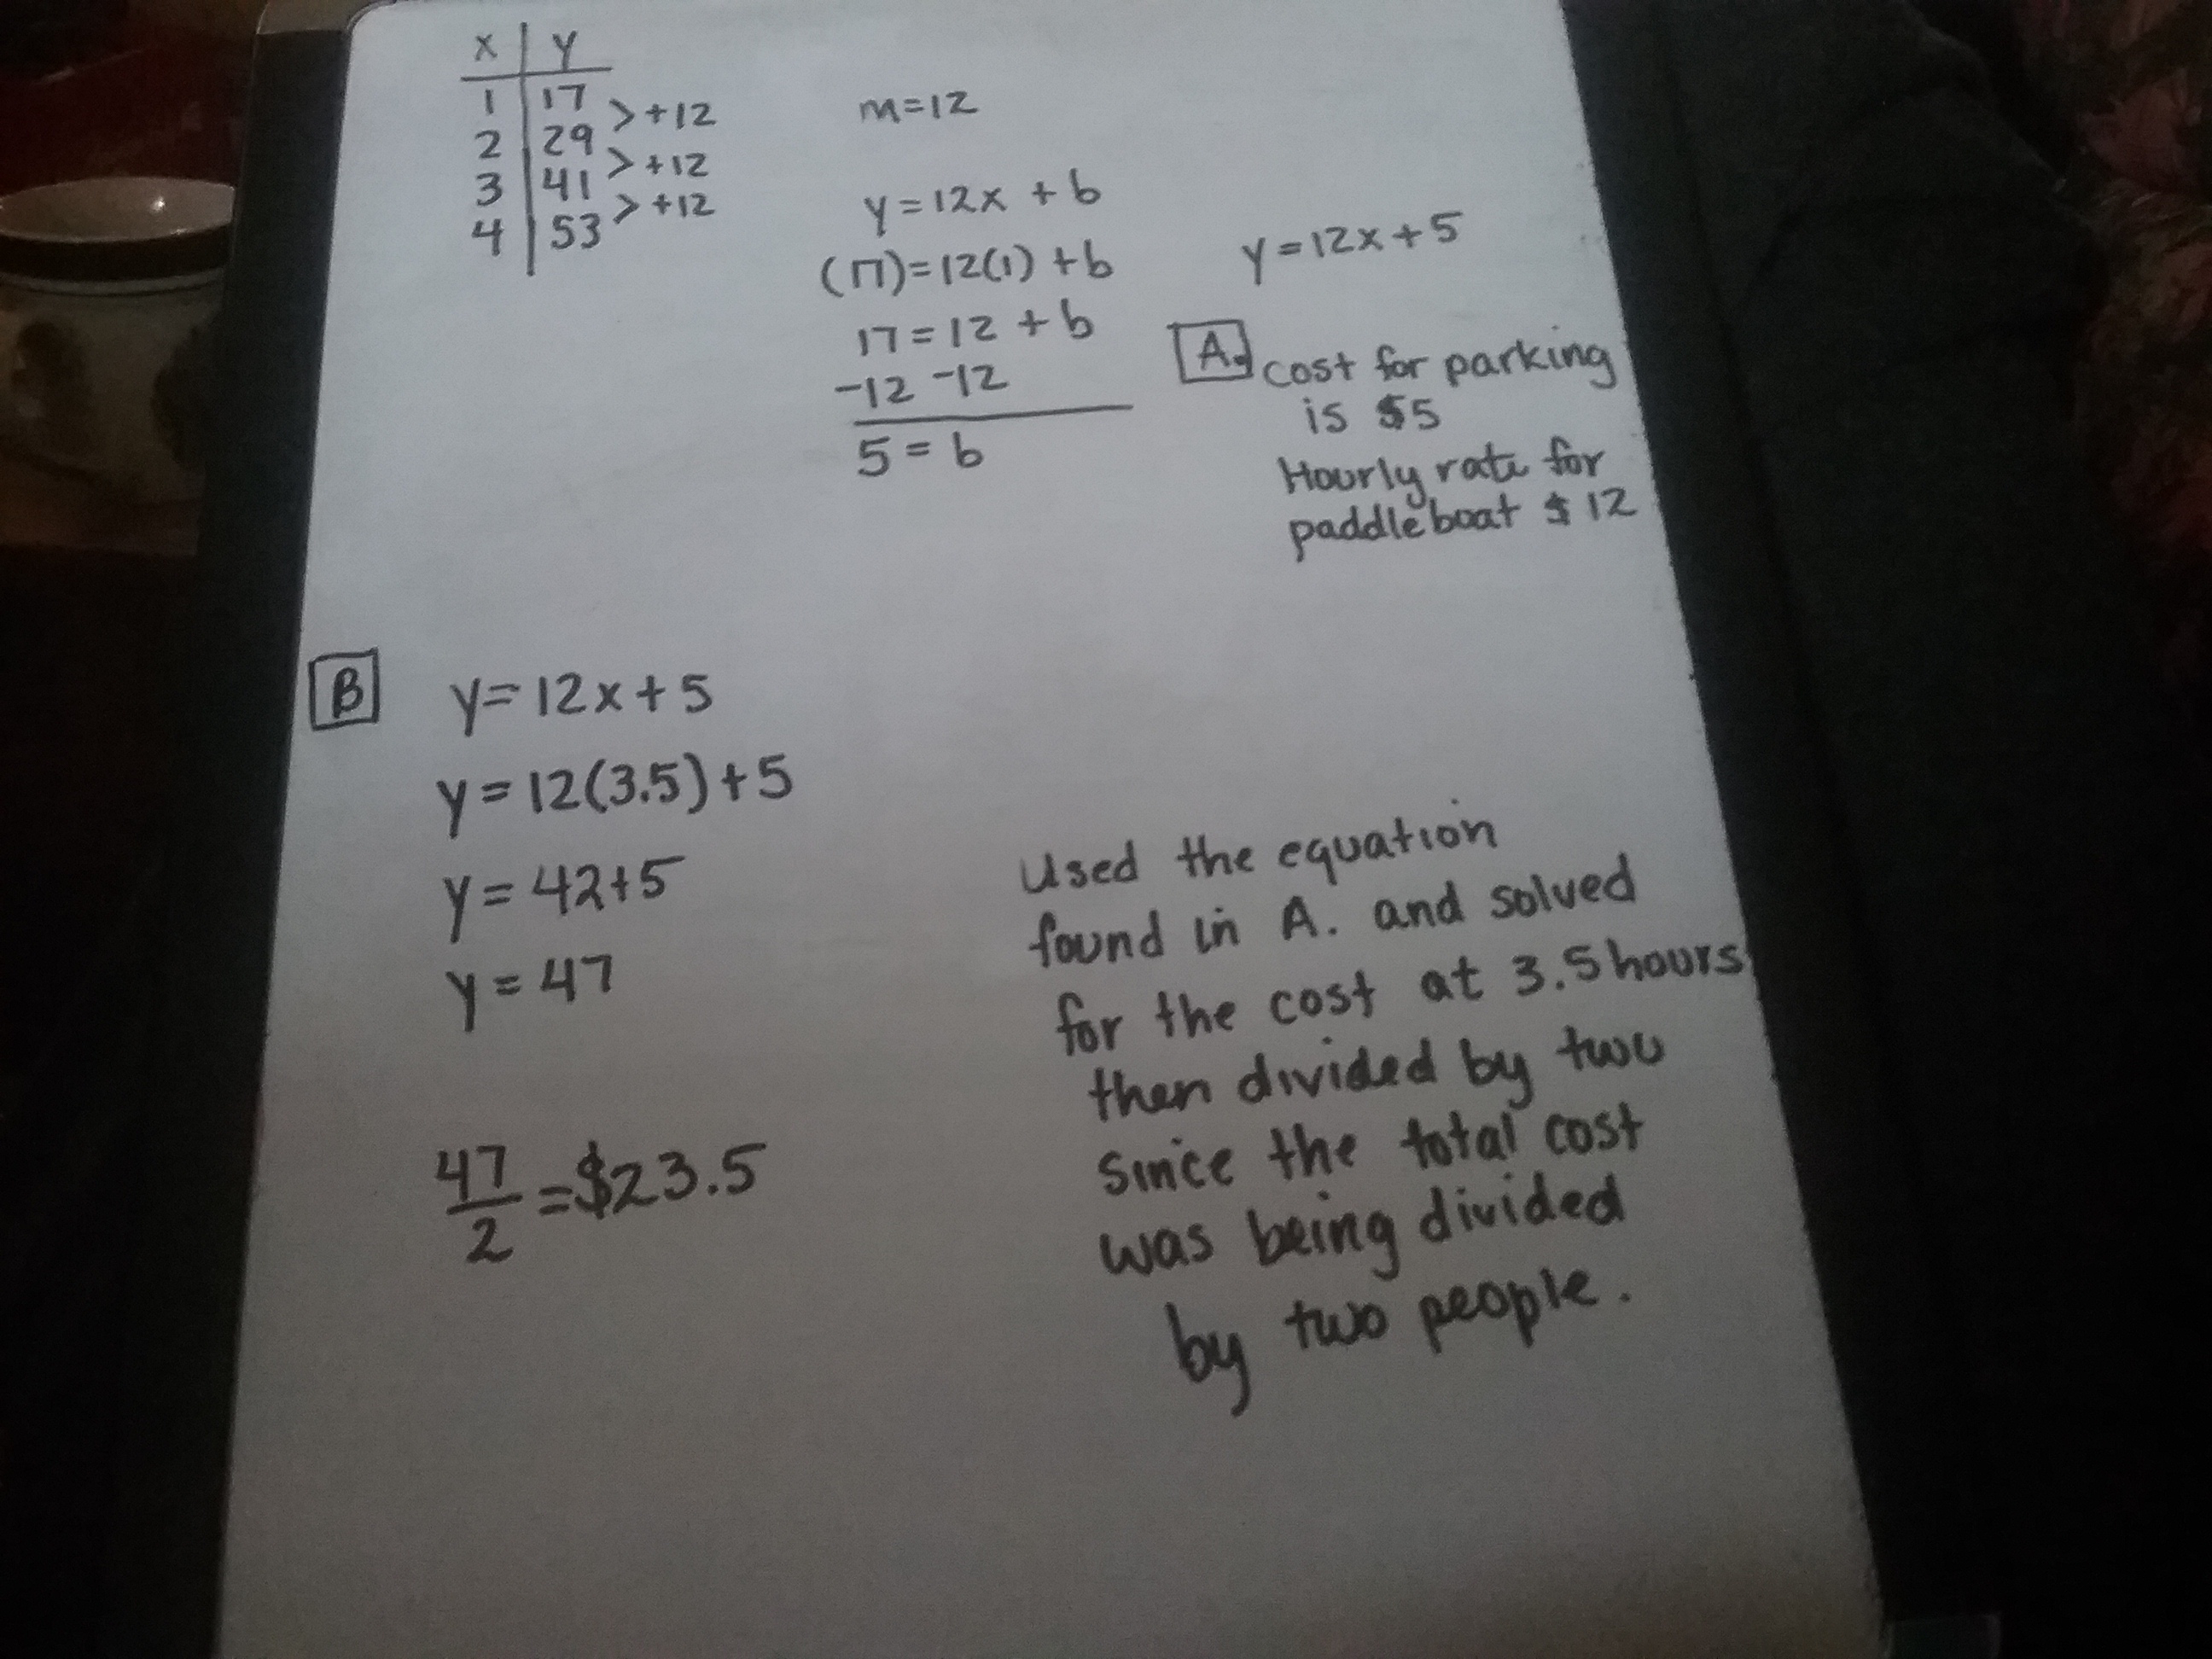 x | y
1 | 17
> +12
2 | 29
> +12
3 | 41
> +12
4 | 53
m=12
y=12x + b
(17)=12(1) +b
17=12 + b
-12 -12
5 = b
y=12x+5
A. cost for parking
is $5
Hourly rate for
paddleboat $12
B
y=12x+5
y=12(3.5)+5
y=42+5
y=47
47/2=$23.5
Used the equation
found in A. and solved
for the cost at 3.5 hours
then divided by two
since the total cost
was being divided
by two people.